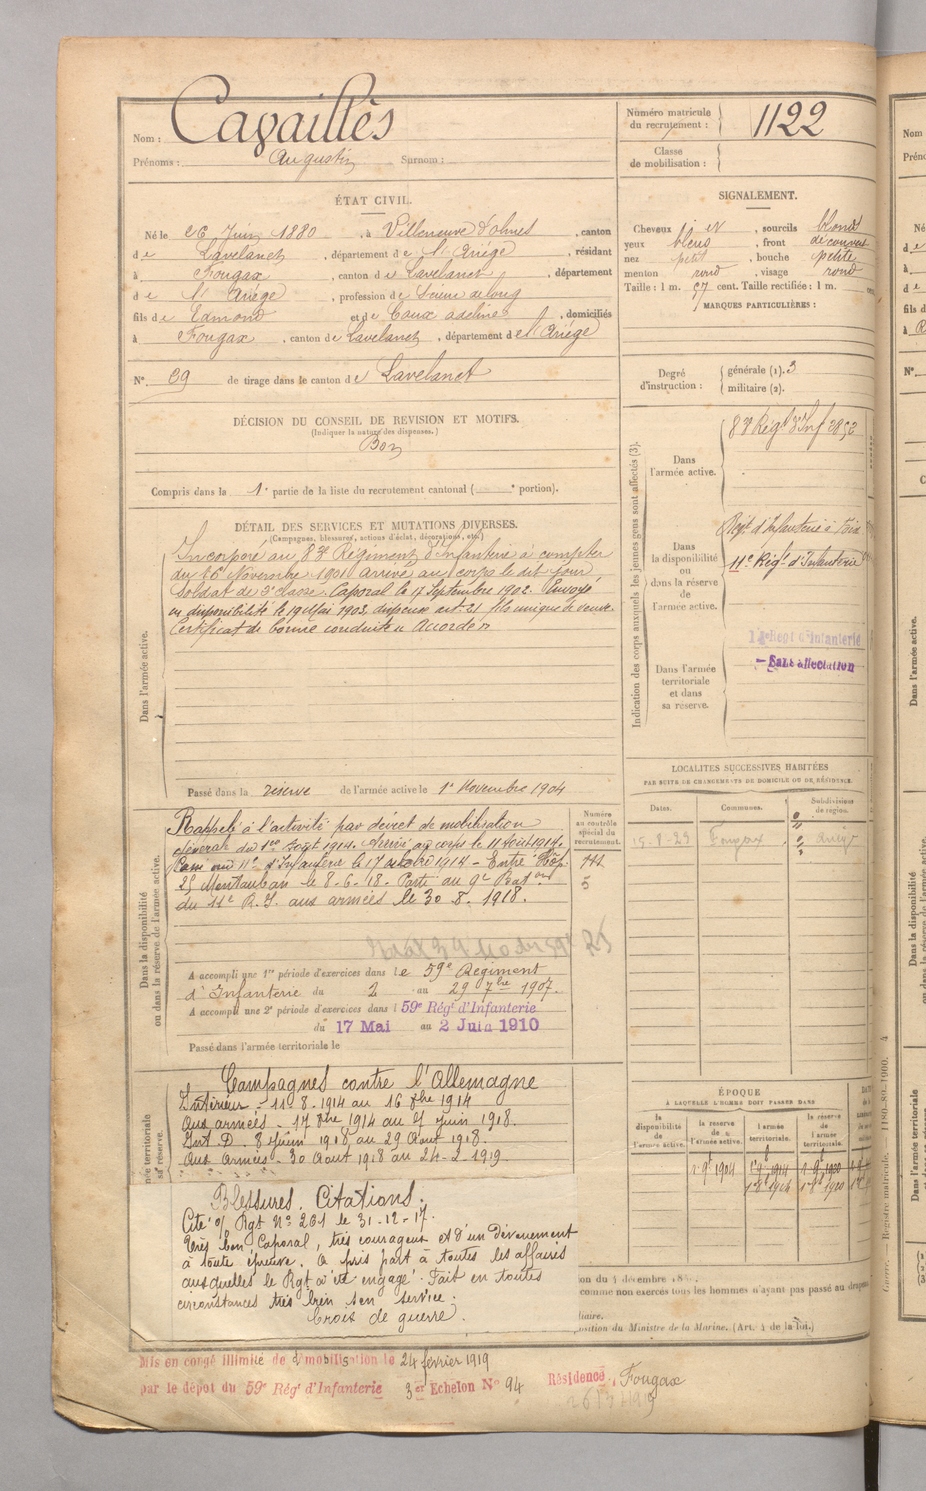 Nom : Cavaillès
Prénoms : Augustin Surnom :
Numéro matricule du recrutement : 1122
Classe de mobilisation :
ÉTAT CIVIL.
Né le 26 Juin 1880, à Villeneuve d'olmes, canton
de Lavelanet, département de l'Ariège, résidant
à Fougax, canton de Lavelanet, département
de l'Ariège, profession de Scieur de long
fils de Edmond et de Caux adeline, domiciliés
à Fougax, canton de Lavelanet, département de l'Ariège
N° 29 de tirage dans le canton de Lavelanet
SIGNALEMENT.
Cheveux, sourcils blond
yeux bleus, front découvert
nez petit, bouche petite
menton rond, visage rond
Taille : 1 m. 57 cent. Taille rectifiée : 1 m. cent.
MARQUES PARTICULIÈRES :
Degré d'instruction : générale (1). 3
militaire (2).
DÉCISION DU CONSEIL DE REVISION ET MOTIFS.
(Indiquer la nature des dispenses.)
Bon
Compris dans la 1e partie de la liste du recrutement cantonal ( e portion).
DÉTAIL DES SERVICES ET MUTATIONS DIVERSES.
(Campagnes, blessures, actions d'éclat, décorations, etc.)
Dans l'armée active.
Incorporé au 83e Régiment d'Infanterie à compter
du 16 Novembre 1901 arrivé au corps le dit jour
Soldat de 2e classe. Caporal le 17 Septembre 1902. Envoyé
en disponibilité le 19 Mai 1903, dispense art. 21 fils unique de veuve
Certificat de bonne conduite "Accordé"
Passé dans la réserve de l'armée active le 1er Novembre 1904
Indication des corps auxquels les jeunes gens sont affectés (3).
Dans l'armée active.
83e Régt d'Inf
Dans la disponibilité ou dans la réserve de l'armée active.
Régt d'Infanterie à Foix
11e Régt d'Infanterie
Dans l'armée territoriale et dans sa réserve.
Régt d'Infanterie
Sans affectation
Dans la disponibilité ou dans la réserve de l'armée active.
Rappelé à l'activité par décret de mobilisation
générale du 1er Août 1914. Arrivé au corps le 11 Août 1914.
Passé au 11e d'Infanterie le 17 octobre 1914 - Entré Hôp.
25 Montauban le 8-6-18. Parti au 9e Baton
du 11e R.I. aux armées le 30 8. 1918.
Numéro au contrôle spécial du recrutement.
A accompli une 1re période d'exercices dans le 59e Regiment
d'Infanterie du 2 au 29 7bre 1907.
A accompli une 2e période d'exercices dans l 59e Régt d'Infanterie
du 17 Mai au 2 Juin 1910
Passé dans l'armée territoriale le
LOCALITÉS SUCCESSIVES HABITÉES
PAR SUITE DE CHANGEMENTS DE DOMICILE OU DE RÉSIDENCE.
Dates. Communes. Subdivisions de région.
15-8-29 Fougax
ÉPOQUE
À LAQUELLE L'HOMME DOIT PASSER DANS
la disponibilité de l'armée active. la réserve de l'armée active. l'armée territoriale. la réserve de l'armée territoriale.
Campagnes contre l'Allemagne
Intérieur - 11-8-1914 au 16 8bre 1914
Aux armées - 17 8bre 1914 au 7 Juin 1918.
Int. D. 8 Juin 1918 au 29 Aout 1918.
Aux Armées. 30 Aout 1918 au 24-2-1919
Blessures. Citations.
Cité o/ Rgt N° 261 le 31-12-17.
Très bon Caporal, très courageux et d'un dévouement
à toute épreuve. A pris part à toutes les affaires
auxquelles le Rgt a été engagé. Fait en toutes
circonstances très bien son service.
Croix de guerre.
comme non exercés tous les hommes n'ayant pas passé au drapeau
du Ministre de la Marine. (Art. 4 de la loi.)
Mis en congé illimité de démobilisation le 24 février 1919
par le dépot du 59e Régt d'Infanterie 3er Echelon N° 94
Résidence, Fougax